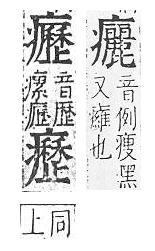 㿛
音例瘦黑
又癕也
癧
音歴
瘰癧
同
上